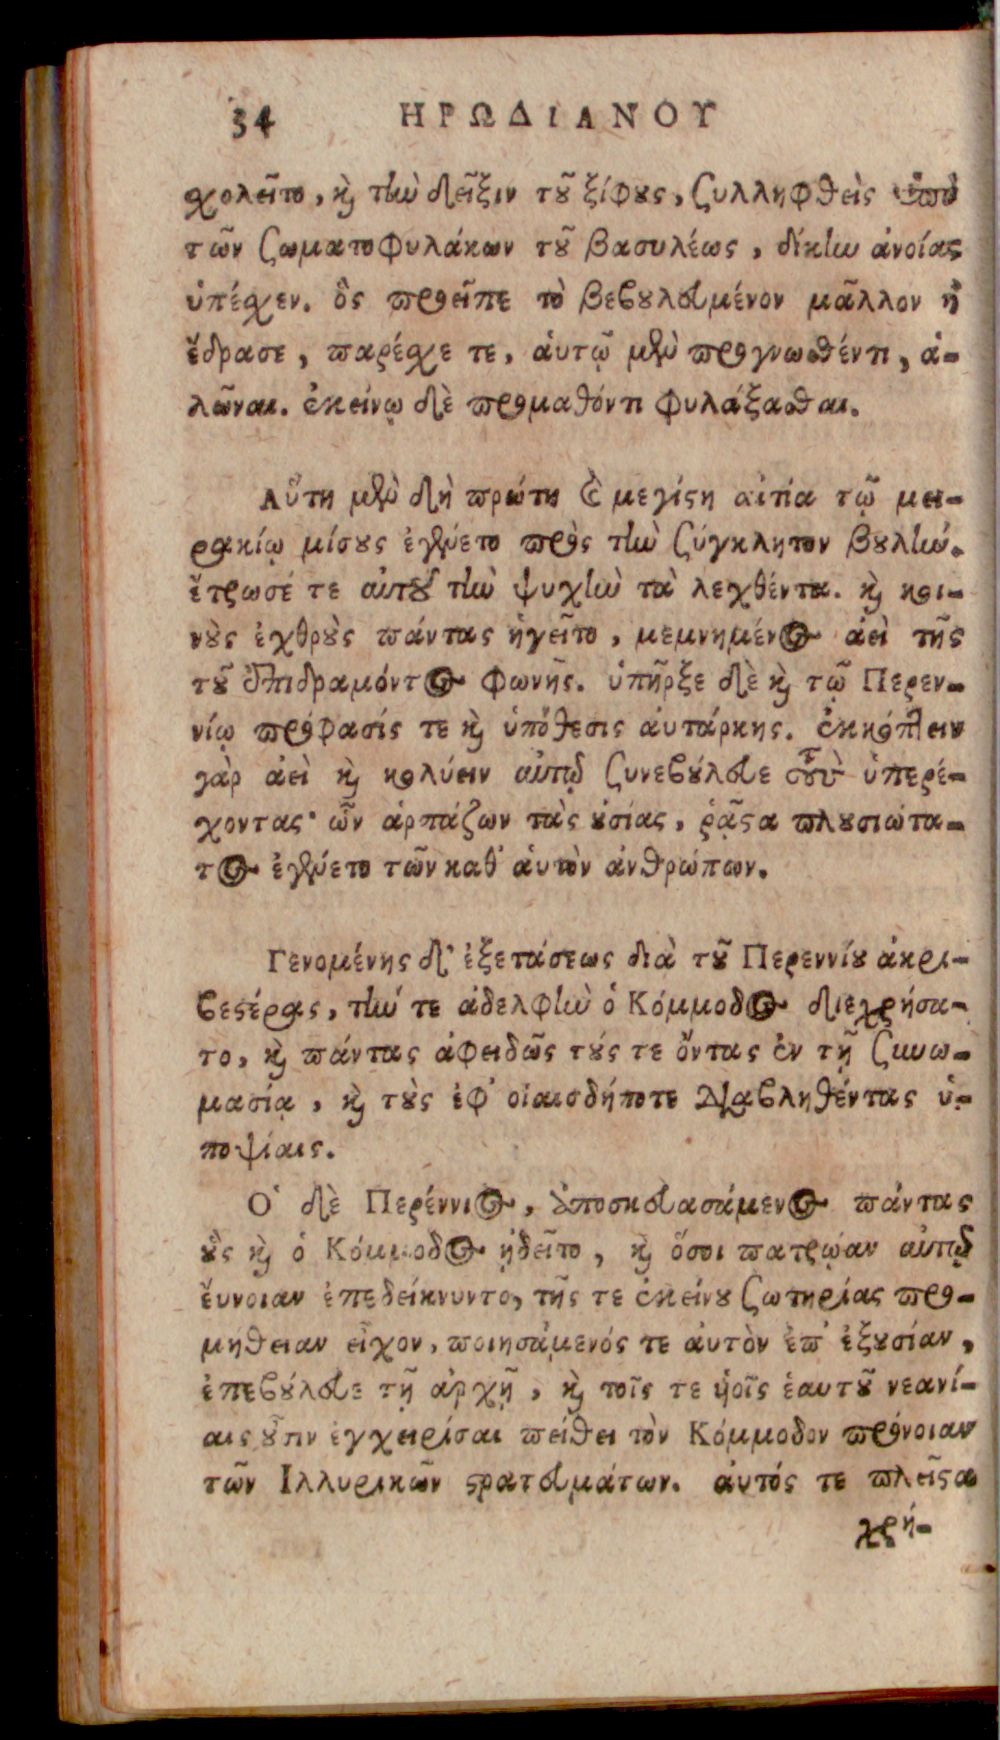 34 ΗΡΩΔΙΑΝΟΥ
χολεῖτο, καὶ τὴν δεῖξιν τοῦ ξίφους, συλληφθεὶς ὑπὸ
τῶν σωματοφυλάκων τοῦ βασυλέως, δίκην ἀνοίας
ὑπέχεν. ὃς προεῖπε τὸ βεβουλευμένον μᾶλλον ἢ
ἔδρασε, παρέχε τε, ἀυτῷ μὲν προγνωσθέντι, ἁ-
λῶναι. ἐκείνῳ δὲ προμαθόντι φυλάξασθαι.
Αὕτη μὲν δὴ πρώτη καὶ μεγίστη αἰτία τῷ μει-
ρακίῳ μίσους ἐγένετο πρὸς τὴν σύγκλητον βουλήν.
ἔτρωσέ τε αὐτοῦ τὴν ψυχὴν τὰ λεχθέντα. καὶ κοι-
νοὺς ἐχθροὺς πάντας ἡγεῖτο, μεμνημένος ἀεὶ τῆς
τοῦ ἐπιδραμόντος φωνῆς. ὑπῆρξε δὲ καὶ τῷ Περεν-
νίῳ πρόφασίς τε καὶ ὑπόθεσις ἀυτάρκης. ἐκκόπτειν
γὰρ ἀεὶ καὶ κολύειν αὐτῷ συνεβούλευε τοὺς ὑπερέ-
χοντας· ὧν ἁρπάζων τὰς οὐσίας, ῥᾷστα πλουσιώτα-
τος ἐγένετο τῶν καθ' ἁυτὸν ἀνθρώπων.
Γενομένης δ' ἐξετάσεως διὰ τοῦ Περεννίου ἀκρι-
βεστέρας, τήν τε ἀδελφὴν ὁ Κόμμοδος διεχρήσα-
το, καὶ πάντας ἀφειδῶς τούς τε ὄντας ἐν τῇ συνω-
μασίᾳ, καὶ τοὺς ἐφ' οἱαισδήποτε διαβληθέντας ὑ-
ποψίαις.
Ὁ δὲ Περέννιος, ἀποσκευασάμενος πάντας
οὓς καὶ ὁ Κόμμοδος ᾐδεῖτο, καὶ ὅσοι πατρῴαν αὐτῷ
ἔυνοιαν ἐπεδείκνυντο, τῆς τε ἐκείνου σωτηρίας προ-
μήθειαν εἶχον, ποιησάμενός τε ἀυτὸν ἐπ' ἐξουσίαν,
ἐπεβούλευε τῇ ἀρχῇ, καὶ τοῖς τε υἱοῖς ἑαυτοῦ νεανί-
αις οὖσιν ἐγχειρίσαι πείθει τὸν Κόμμοδον πρόνοιαν
τῶν Ιλλυρικῶν στρατευμάτων. ἀυτός τε πλεῖστα
χρή-